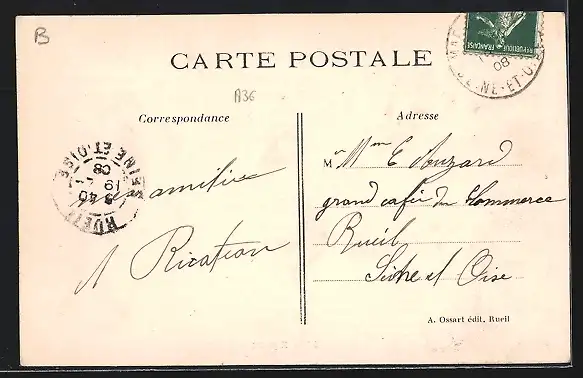 B
CARTE POSTALE
A36
Correspondance
Adresse
REPUBLIQUE FRANÇAISE
08
SEINE-ET-O
SEINE-ET-OISE
RUEIL
08
19
5 40
amitiés
M
Mme E Ouzard
grand café du Commerce
Rueil
Seine et Oise
A. Ossart édit, Rueil